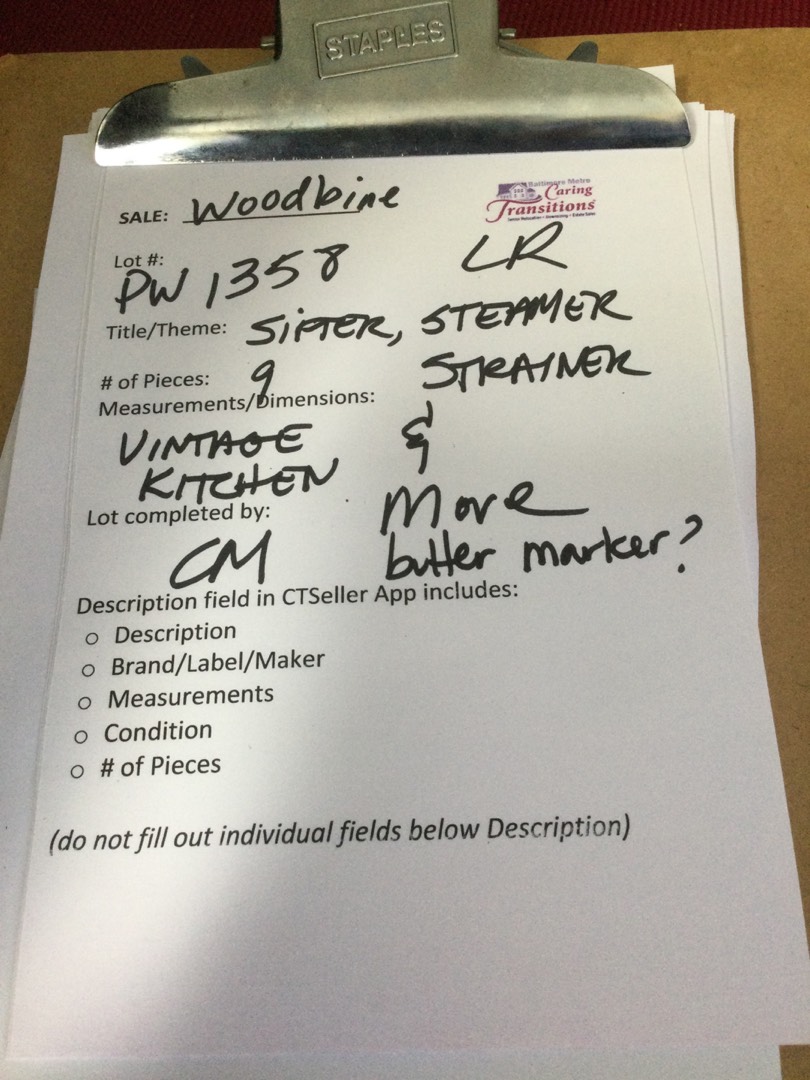 STAPLES
SALE: Woodbine
Baltimore Metro
Caring
Transitions
Lot #:
PW 1358 LR
Title/Theme: SIFTER, STEAMER
STRAINER
# of Pieces: 9
Measurements/Dimensions:
VINTAGE &
KITCHEN
More
Lot completed by:
CM butter marker?
Description field in CTSeller App includes:
o Description
o Brand/Label/Maker
o Measurements
o Condition
o # of Pieces
(do not fill out individual fields below Description)